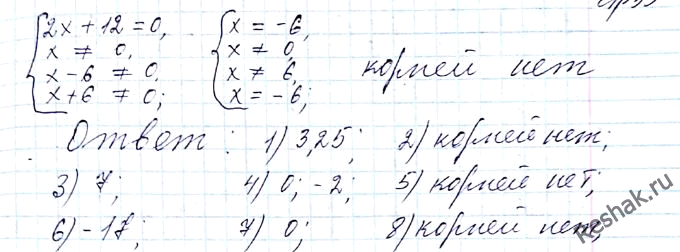 2x + 12 = 0, x = -6,
x ≠ 0, x ≠ 0,
x - 6 ≠ 0, x ≠ 6, корней нет
x + 6 ≠ 0; x = -6;
Ответ: 1) 3,25; 2) корней нет;
3) 7; 4) 0; -2; 5) корней нет;
6) -17; 7) 0; 8) корней нет;
Reshak.ru